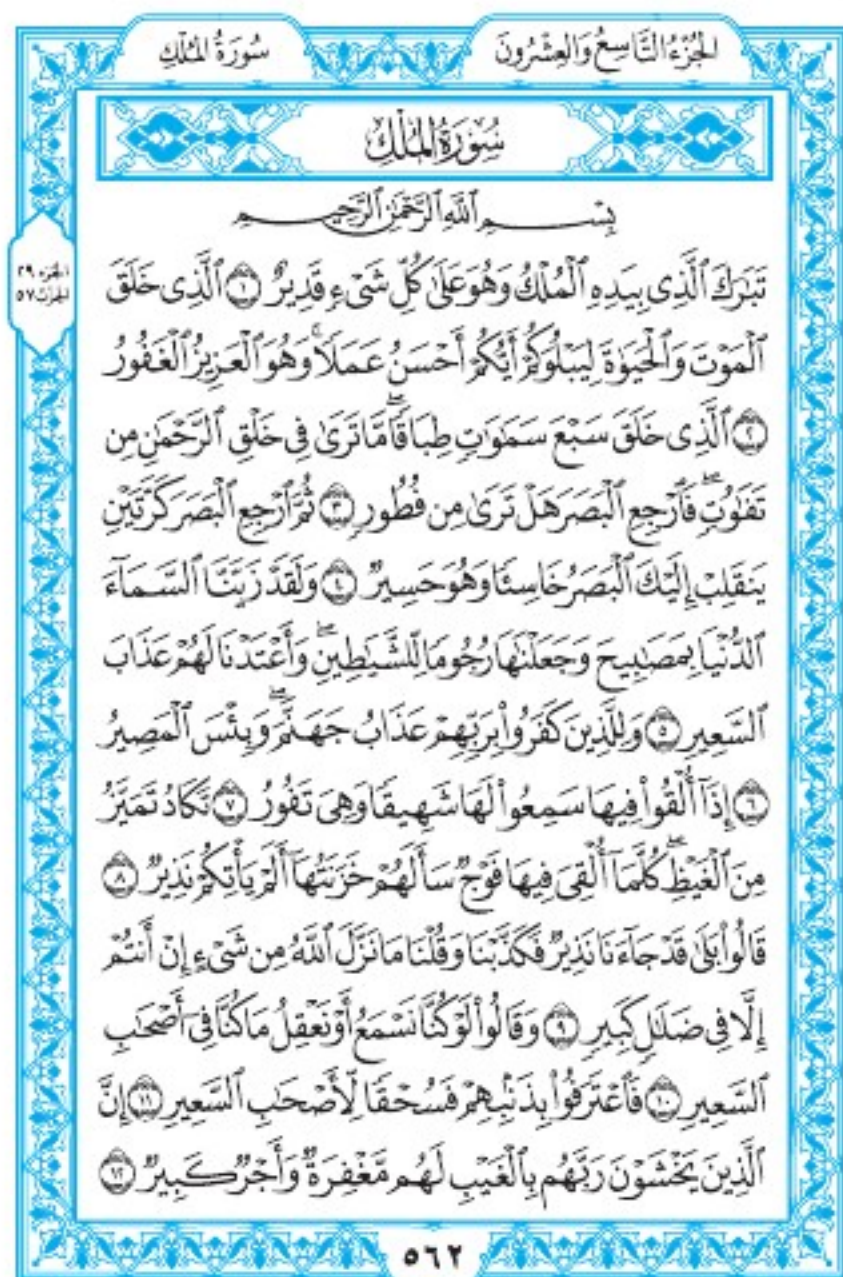 الجُزْءُ التَّاسِعُ وَالعِشْرُونَ
سُورَةُ المُلْكِ
سُورَةُ المُلْكِ
بِسْمِ ٱللَّهِ ٱلرَّحْمَٰنِ ٱلرَّحِيمِ
الجزء ٢٩
الحزب ٥٧
تَبَٰرَكَ ٱلَّذِي بِيَدِهِ ٱلْمُلْكُ وَهُوَ عَلَىٰ كُلِّ شَيْءٍ قَدِيرٌ ١ ٱلَّذِي خَلَقَ
ٱلْمَوْتَ وَٱلْحَيَوٰةَ لِيَبْلُوَكُمْ أَيُّكُمْ أَحْسَنُ عَمَلًا ۚ وَهُوَ ٱلْعَزِيزُ ٱلْغَفُورُ
٢ ٱلَّذِي خَلَقَ سَبْعَ سَمَٰوَٰتٍ طِبَاقًا ۖ مَّا تَرَىٰ فِي خَلْقِ ٱلرَّحْمَٰنِ مِن
تَفَٰوُتٍ ۖ فَٱرْجِعِ ٱلْبَصَرَ هَلْ تَرَىٰ مِن فُطُورٍ ٣ ثُمَّ ٱرْجِعِ ٱلْبَصَرَ كَرَّتَيْنِ
يَنقَلِبْ إِلَيْكَ ٱلْبَصَرُ خَاسِئًا وَهُوَ حَسِيرٌ ٤ وَلَقَدْ زَيَّنَّا ٱلسَّمَآءَ
ٱلدُّنْيَا بِمَصَٰبِيحَ وَجَعَلْنَٰهَا رُجُومًا لِّلشَّيَٰطِينِ ۖ وَأَعْتَدْنَا لَهُمْ عَذَابَ
ٱلسَّعِيرِ ٥ وَلِلَّذِينَ كَفَرُوا۟ بِرَبِّهِمْ عَذَابُ جَهَنَّمَ ۖ وَبِئْسَ ٱلْمَصِيرُ
٦ إِذَآ أُلْقُوا۟ فِيهَا سَمِعُوا۟ لَهَا شَهِيقًا وَهِيَ تَفُورُ ٧ تَكَادُ تَمَيَّزُ
مِنَ ٱلْغَيْظِ ۖ كُلَّمَآ أُلْقِيَ فِيهَا فَوْجٌ سَأَلَهُمْ خَزَنَتُهَآ أَلَمْ يَأْتِكُمْ نَذِيرٌ ٨
قَالُوا۟ بَلَىٰ قَدْ جَآءَنَا نَذِيرٌ فَكَذَّبْنَا وَقُلْنَا مَا نَزَّلَ ٱللَّهُ مِن شَيْءٍ إِنْ أَنتُمْ
إِلَّا فِي ضَلَٰلٍ كَبِيرٍ ٩ وَقَالُوا۟ لَوْ كُنَّا نَسْمَعُ أَوْ نَعْقِلُ مَا كُنَّا فِيٓ أَصْحَٰبِ
ٱلسَّعِيرِ ١٠ فَٱعْتَرَفُوا۟ بِذَنۢبِهِمْ فَسُحْقًا لِّأَصْحَٰبِ ٱلسَّعِيرِ ١١ إِنَّ
ٱلَّذِينَ يَخْشَوْنَ رَبَّهُم بِٱلْغَيْبِ لَهُم مَّغْفِرَةٌ وَأَجْرٌ كَبِيرٌ ١٢
٥٦٢